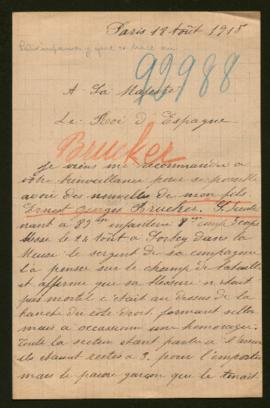 Paris 18 Août 1915
92988
A Sa Majesté
Le Roi d'Espagne
Brucker
Je viens me recommander a
votre bienveillance pour si possible
avoir des nouvelles de mon fils
Ernest Georges Brucker. S. Lieute
nant a 82em infanterie 8em Comp
le 28 Août a dans la
Meuse le sergent de sa compagnie
l'a penser sur le champ de bataille
et affirme que sa blessure n était
pas mortel c'était au dessus de la
hanche du côté droit formant seller
mais a occasionner une hémoragie.
Toute la section étant partie a l'assaut
ils étaient restés a 3. pour l'emporter
mais le pauvre garçon que le tenait